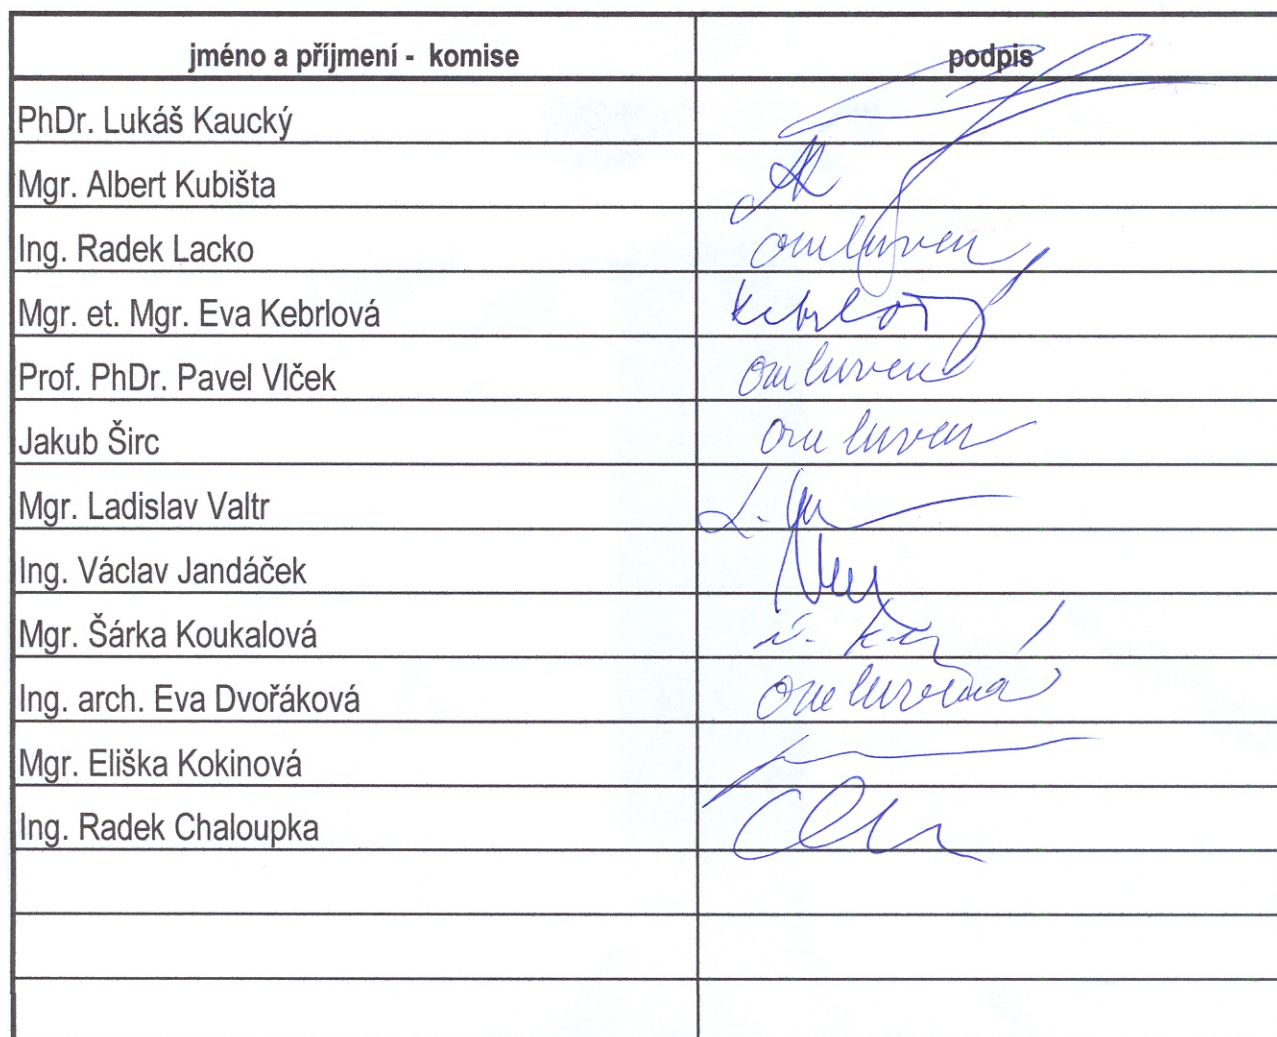 jméno a příjmení - komise podpis
PhDr. Lukáš Kaucký
Mgr. Albert Kubišta
Ing. Radek Lacko omluven
Mgr. et. Mgr. Eva Kebrlová
Prof. PhDr. Pavel Vlček omluven
Jakub Širc omluven
Mgr. Ladislav Valtr
Ing. Václav Jandáček
Mgr. Šárka Koukalová
Ing. arch. Eva Dvořáková omluvena
Mgr. Eliška Kokinová
Ing. Radek Chaloupka